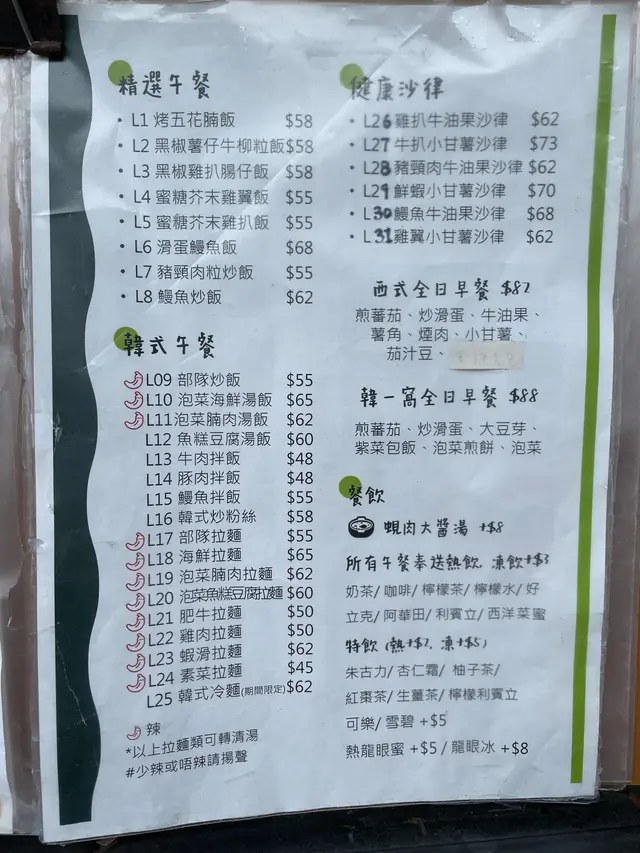 精選午餐
• L1 烤五花腩飯 $58
• L2 黑椒薯仔牛柳粒飯$58
• L3 黑椒雞扒腸仔飯 $58
• L4 蜜糖芥末雞翼飯 $55
• L5 蜜糖芥末雞扒飯 $55
• L6 滑蛋鰻魚飯 $68
• L7 豬頸肉粒炒飯 $55
• L8 鰻魚炒飯 $62
韓式午餐
L09 部隊炒飯 $55
L10 泡菜海鮮湯飯 $65
L11泡菜腩肉湯飯 $62
L12 魚糕豆腐湯飯 $60
L13 牛肉拌飯 $48
L14 豚肉拌飯 $48
L15 鰻魚拌飯 $55
L16 韓式炒粉絲 $58
L17 部隊拉麵 $55
L18 海鮮拉麵 $65
L19 泡菜腩肉拉麵 $62
L20 泡菜魚糕豆腐拉麵 $60
L21 肥牛拉麵 $50
L22 雞肉拉麵 $50
L23 蝦滑拉麵 $62
L24 素菜拉麵 $45
L25 韓式冷麵(期間限定)$62
辣
*以上拉麵類可轉清湯
#少辣或唔辣請揚聲
健康沙律
• L26雞扒牛油果沙律 $62
• L27牛扒小甘薯沙律 $73
• L28豬頸肉牛油果沙律 $62
• L29鮮蝦小甘薯沙律 $70
• L30鰻魚牛油果沙律 $68
• L31雞翼小甘薯沙律 $62
西式全日早餐 $82
煎蕃茄、炒滑蛋、牛油果、
薯角、煙肉、小甘薯、
茄汁豆、
韓一窩全日早餐 $88
煎蕃茄、炒滑蛋、大豆芽、
紫菜包飯、泡菜煎餅、泡菜
餐飲
蜆肉大醬湯 +$8
所有午餐奉送熱飲, 凍飲+$3
奶茶/ 咖啡/ 檸檬茶/ 檸檬水/ 好
立克/ 阿華田/ 利賓立/ 西洋菜蜜
特飲 (熱+$2, 凍+$5)
朱古力/ 杏仁霜/ 柚子茶/
紅棗茶/ 生薑茶/ 檸檬利賓立
可樂/ 雪碧 +$5
熱龍眼蜜 +$5 / 龍眼冰 +$8